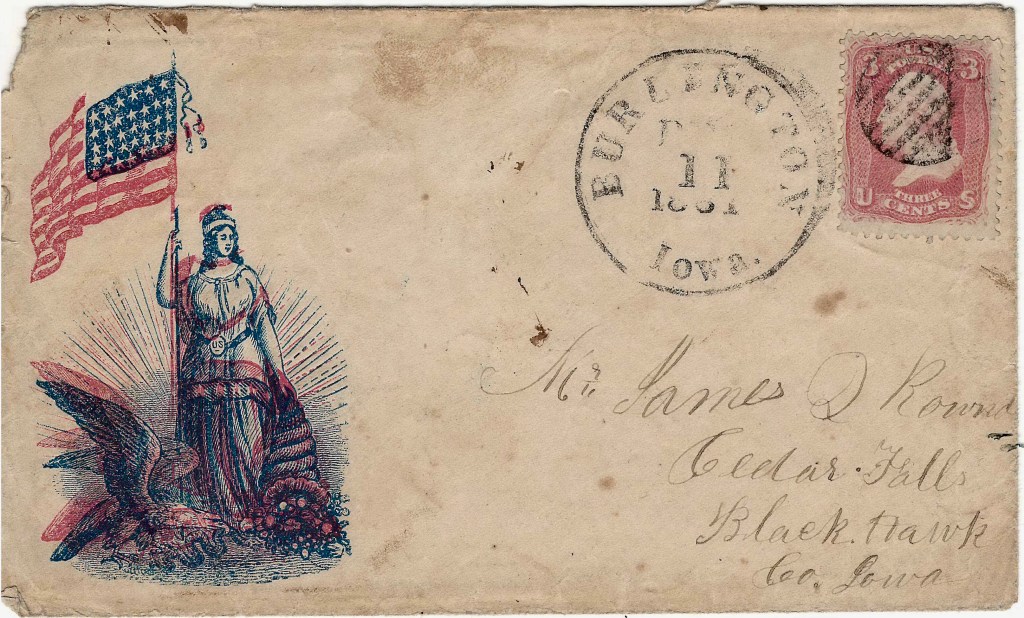 BURLINGTON
11
1861
Iowa.
3 U.S. 3
POSTAGE
THREE
U CENTS S
US
Mr. James Q Rown
Cedar Falls
Black Hawk
Co. Iowa